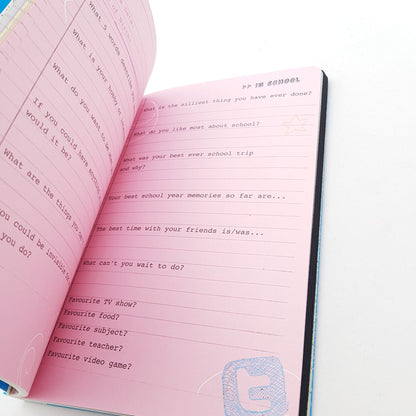 What 5 words describe
What is your hobby or
What do you want to be wh
If you could have anythin
would it be?
What are the things you
you could be invisible fo
you do?
>> IN SCHOOL
What is the silliest thing you have ever done?
What do you like most about school?
What was your best ever school trip
and why?
Your best school year memories so far are...
The best time with your friends is/was...
What can't you wait to do?
Favourite TV show?
Favourite food?
Favourite subject?
Favourite teacher?
Favourite video game?
t